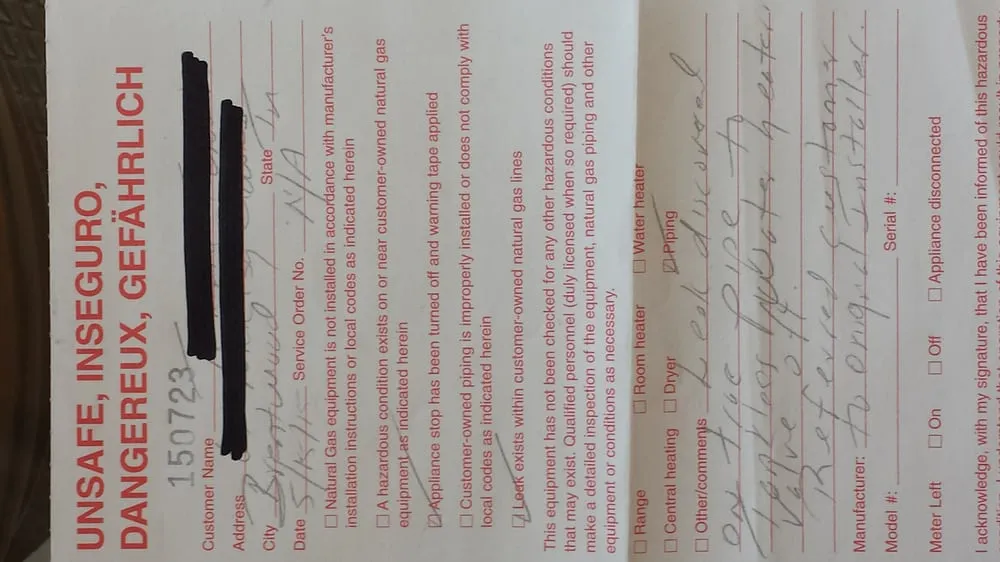 UNSAFE, INSEGURO,
DANGEREUX, GEFÄHRLICH
150723
Customer Name
Address
City Brentwood State Tn
Date Service Order No. N/A
☐ Natural Gas equipment is not installed in accordance with manufacturer's
installation instructions or local codes as indicated herein
☐ A hazardous condition exists on or near customer-owned natural gas
equipment as indicated herein
☑ Appliance stop has been turned off and warning tape applied
☐ Customer-owned piping is improperly installed or does not comply with
local codes as indicated herein
☑ Leak exists within customer-owned natural gas lines
This equipment has not been checked for any other hazardous conditions
that may exist. Qualified personnel (duly licensed when so required) should
make a detailed inspection of the equipment, natural gas piping and other
equipment or conditions as necessary.
☐ Range ☐ Room heater ☐ Water heater
☐ Central heating ☐ Dryer ☑ Piping
☐ Other/comments Leak discovered
on trac pipe to
tankless water heater
Valve off.
Refered customer
Manufacturer: to original installer.
Model #: Serial #:
Meter Left ☐ On ☐ Off ☐ Appliance disconnected
I acknowledge, with my signature, that I have been informed of this hazardous